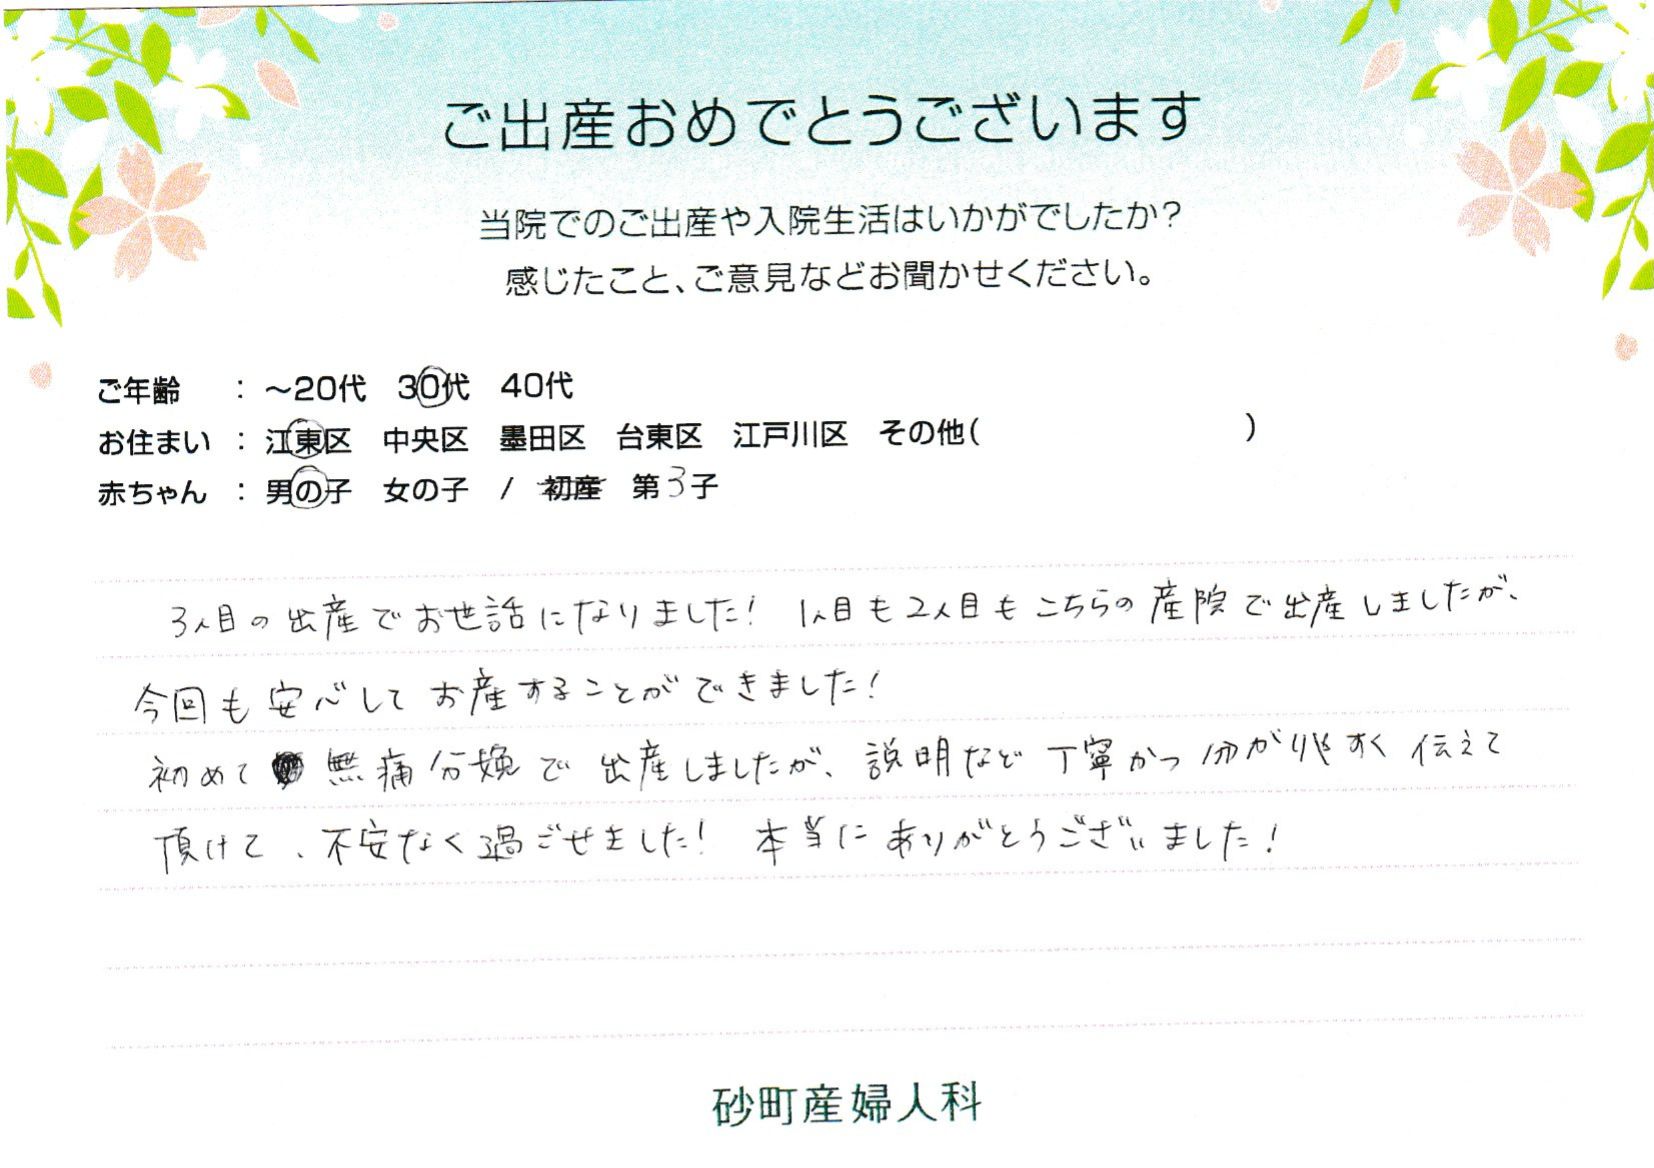 ご出産おめでとうございます
当院でのご出産や入院生活はいかがでしたか?
感じたこと、ご意見などお聞かせください。
ご年齢 : ～20代 30代 40代
お住まい : 江東区 中央区 墨田区 台東区 江戸川区 その他( )
赤ちゃん : 男の子 女の子 / 初産 第3子
3人目の出産でお世話になりました! 1人目も2人目もこちらの産院で出産しましたが、
今回も安心してお産することができました!
初めて 無痛分娩で出産しましたが、説明など丁寧かつ分がりやすく伝えて
頂けて、不安なく過ごせました! 本当にありがとうございました!
砂町産婦人科